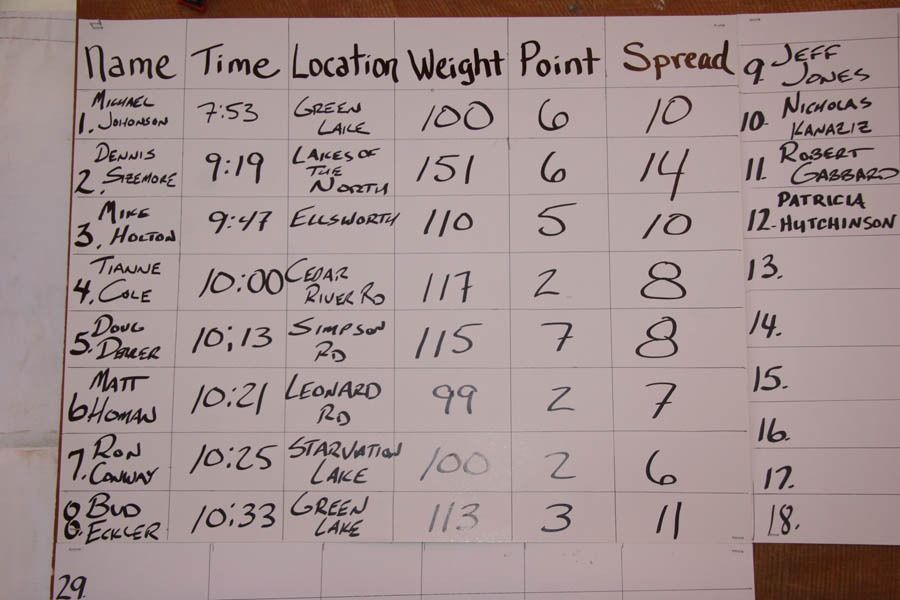 Name Time Location Weight Point Spread
1. Michael Johonson 7:53 Green Lake 100 6 10
2. Dennis Sizemore 9:19 Lakes of the North 151 6 14
3. Mike Holton 9:47 Ellsworth 110 5 10
4. Tianne Cole 10:00 Cedar River Rd 117 2 8
5. Doug Derrer 10:13 Simpson Rd 115 7 8
6 Matt Homan 10:21 Leonard Rd 99 2 7
7. Ron Conway 10:25 Starvation Lake 100 2 6
8. Bud Eckler 10:33 Green Lake 113 3 11
29.
9. Jeff Jones
10. Nicholas Kanaziz
11. Robert Gabbard
12. Patricia Hutchinson
13.
14.
15.
16.
17.
18.